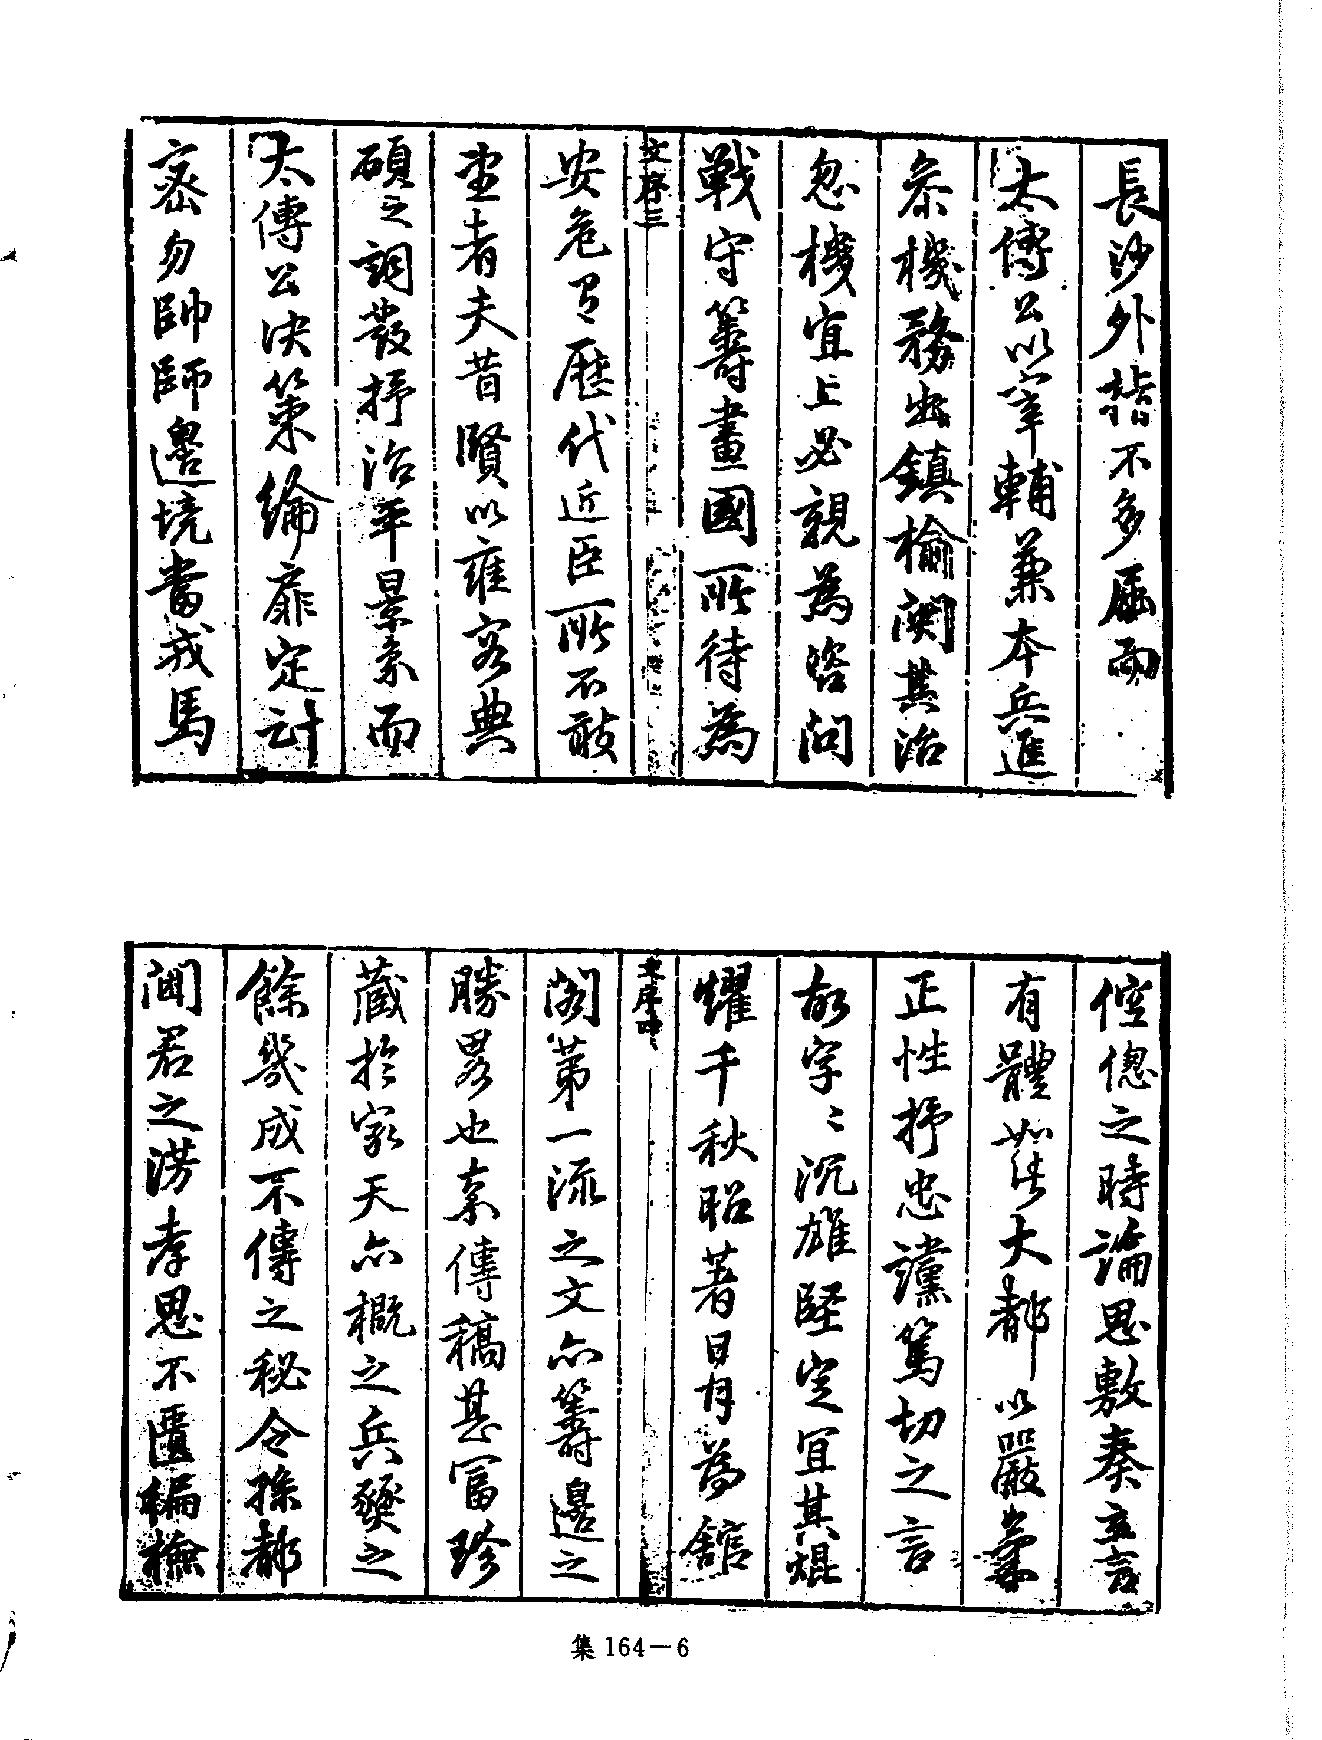 長沙外指不多屈而
太傅公以宰輔兼本兵進
參機務出鎮榆關其治
怱機宜上必親為咨問
戰守籌畫國所待為
文序三
安危有歷代近臣所不敢
望者夫昔賢以雍容典
碩之詞發抒治平景象而
太傅公決策綸扉定計
密勿帥師邊境當戎馬
倥傯之時論思敷奏立言
有體如此大都以嚴氣
正性抒忠讜篤切之言
故字々沉雄堅定宜其焜
耀千秋昭著日月為館
文序四
閣第一流之文亦籌邊之
勝畧也奈傳稿甚富珍
藏於家天亦概之兵燹之
餘幾成不傳之秘令孫都
閫君之滂孝思不匱編檢